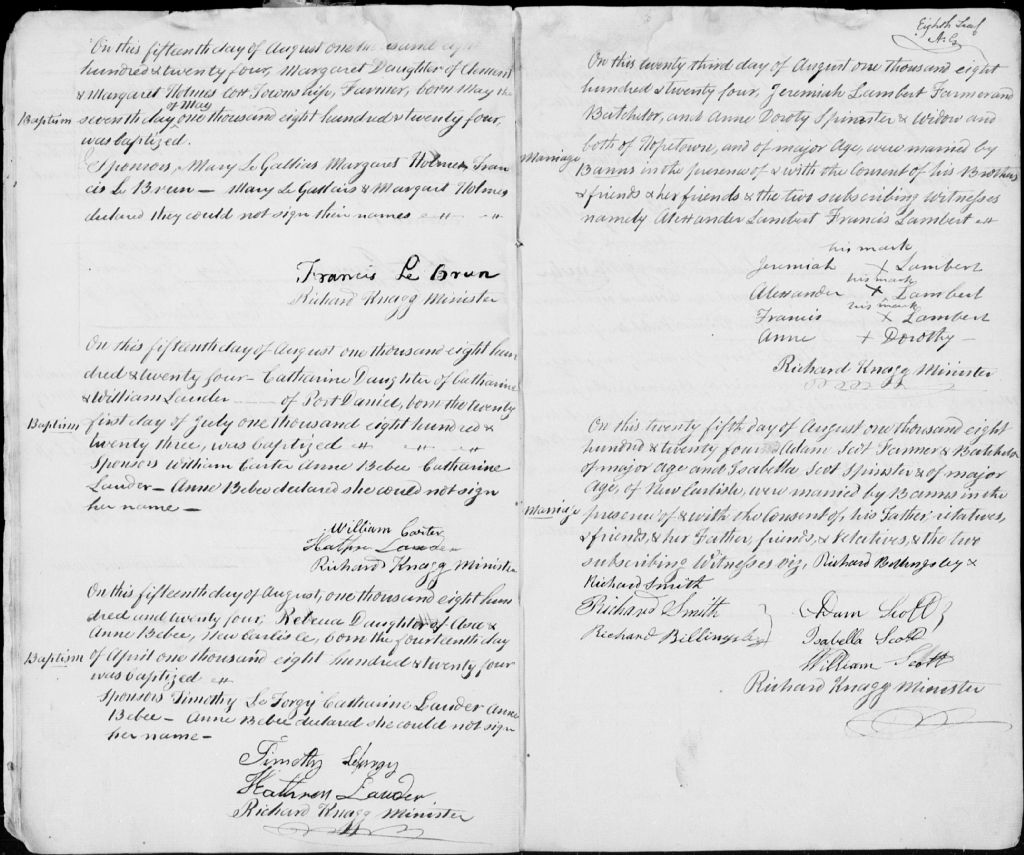 On this fifteenth day of August one thousand eight
hundred & twenty four, Margaret Daughter of Clement
& Margaret Holmes Cox Township, Farmer, born May the
of May
Baptism seventh day one thousand eight hundred & twenty four,
was baptized.
Sponsors, Mary Le Gallais Margaret Holmes, Fran
cis Le Brun — Mary Le Gallais & Margart Holmes
declared they could not sign their names
Francis Le Brun
Richard Knagg Minister
On this fifteenth day of August one thousand eight hun
dred & twenty four — Catharine Daughter of Catharine
& William Lauder — of Port Daniel, born the twenty
Baptism first day of July one thousand eight hundred &
twenty three, was baptized
Sponsors William Carter Anne Bebee Catharine
Lauder — Anne Bebee declared she could not sign
her name —
William Carter
Kathrn Lauder
Richard Knagg Minister
On this fifteenth day of August, one thousand eight hun
dred and twenty four, Rebecca Daughter of Asa &
Anne Bebee, New Carlisle, born the fourteenth day
Baptism of April one thousand eight hundred & twenty four
was baptized
Sponsors Timothy Le Forgy Catharine Lauder Anne
Bebee — Anne Bebee declared she could not sign
her name —
Timothy Leforgy
Kathren Lauder
Richard Knagg Minister
Eighth Leaf
On this twenty third day of August one thousand eight
hundred & twenty four, Jeremiah Lambert Farmer and
Batchelor, and Anne Doroty Spinster & Widow and
both of Hopetown, and of major Age, were married by
Marriage Banns in the presence of & with the Consent of his Brothers
& friends & her friends & the two subscribing Witnesses
namely Alexander Lambert Francis Lambert
his mark
Jeremiah X Lambert
his mark
Alexander X Lambert
his mark
Francis X Lambert
Anne + Dorothy —
Richard Knagg Minister
On this twenty fifth day of August one thousand eight
hundred & twenty four, Adam Scot Farmer & Batchelor
of major Age and Isabella Scot Spinster & of major
Age, of New Carlisle, were married by Banns in the
Marriage presence of & with the Consent of, his Father, relatives,
& friends, & her Father, friends, & relatives, & the two
subscribing Witnesses viz, Richard Billingsley &
Richard Smith
Richard Smith } Adam Scott }
Richard Billingsley Isabella Scott
William Scott
Richard Knagg Minister